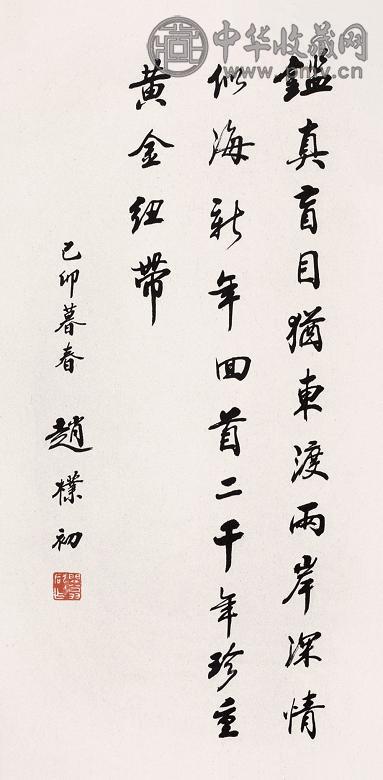 鑑真盲目猶東渡兩岸深情
似海新年回首二千年珍重
黄金紐帶
己卯暮春
趙樸初
中华收藏网
www.pntv.cn